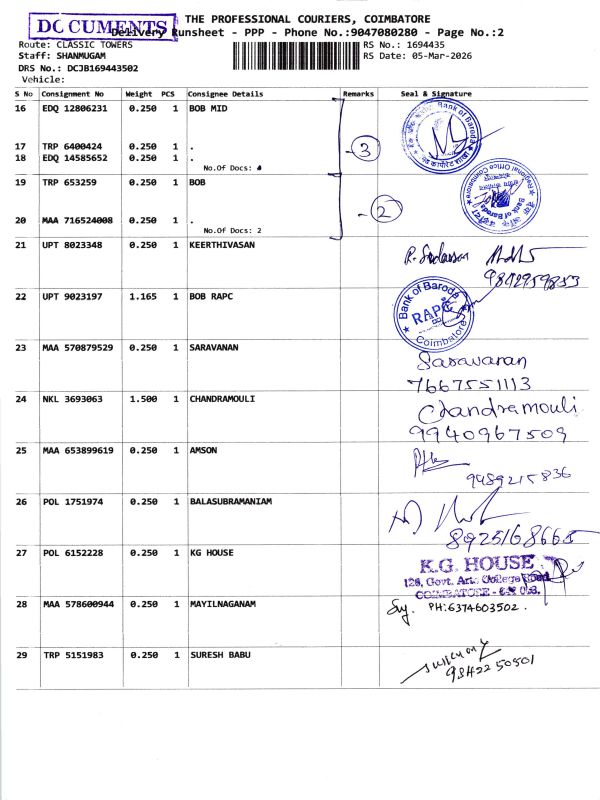 DOCUMENTS
THE PROFESSIONAL COURIERS, COIMBATORE
Delivery Runsheet - PPP - Phone No.:9047080280 - Page No.:2
Route: CLASSIC TOWERS
RS No.: 1694435
Staff: SHANMUGAM
RS Date: 05-Mar-2026
DRS No.: DCJB169443502
Vehicle:
S No Consignment No Weight PCS Consignee Details Remarks Seal & Signature
16 EDQ 12806231 0.250 1 BOB MID
Bank of Baroda
17 TRP 6400424 0.250 1 .
3
18 EDQ 14585652 0.250 1 .
No.Of Docs:
19 TRP 653259 0.250 1 BOB
Bank of Baroda
Regional Office
Coimbatore
2
20 MAA 716524008 0.250 1 .
No.Of Docs: 2
21 UPT 8023348 0.250 1 KEERTHIVASAN
22 UPT 9023197 1.165 1 BOB RAPC
Bank of Baroda
RAPC
Coimbatore
23 MAA 570879529 0.250 1 SARAVANAN
Saravanan
7667551113
24 NKL 3693063 1.500 1 CHANDRAMOULI
Chandramouli
9940967509
25 MAA 653899619 0.250 1 AMSON
9489215836
26 POL 1751974 0.250 1 BALASUBRAMANIAM
8925168665
27 POL 6152228 0.250 1 KG HOUSE
K.G. HOUSE
128, Govt. Arts College Road
28 MAA 578600944 0.250 1 MAYILNAGANAM
PH:6374603502.
29 TRP 5151983 0.250 1 SURESH BABU